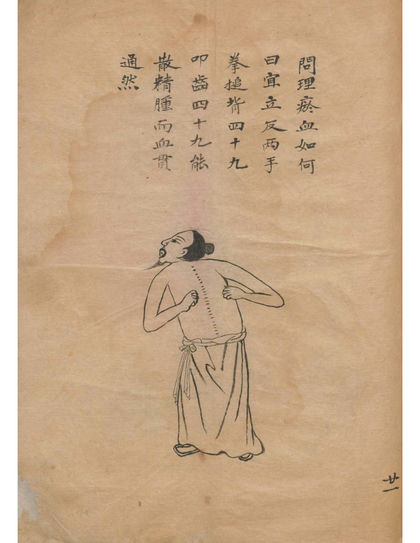 問理瘀血如何
曰宜立反兩手
拳搥背四十九
叩齒四十九能
散精腫而血貫
通然
廿一